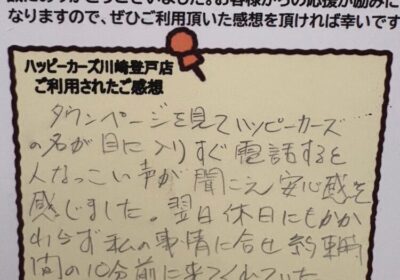 誠にありがとうございました。お客様からの応援が励みに
なりますので、ぜひご利用頂いた感想を頂ければ幸いです
ハッピーカーズ川崎登戸店
ご利用されたご感想
タウンページを見てハッピーカーズ
の名が目に入りすぐ電話すると
人なっこい声が聞こえ安心感を
感じました。翌日休日にもかか
わらず私の事情に合せ約束時
間の10分前に来てくれていた